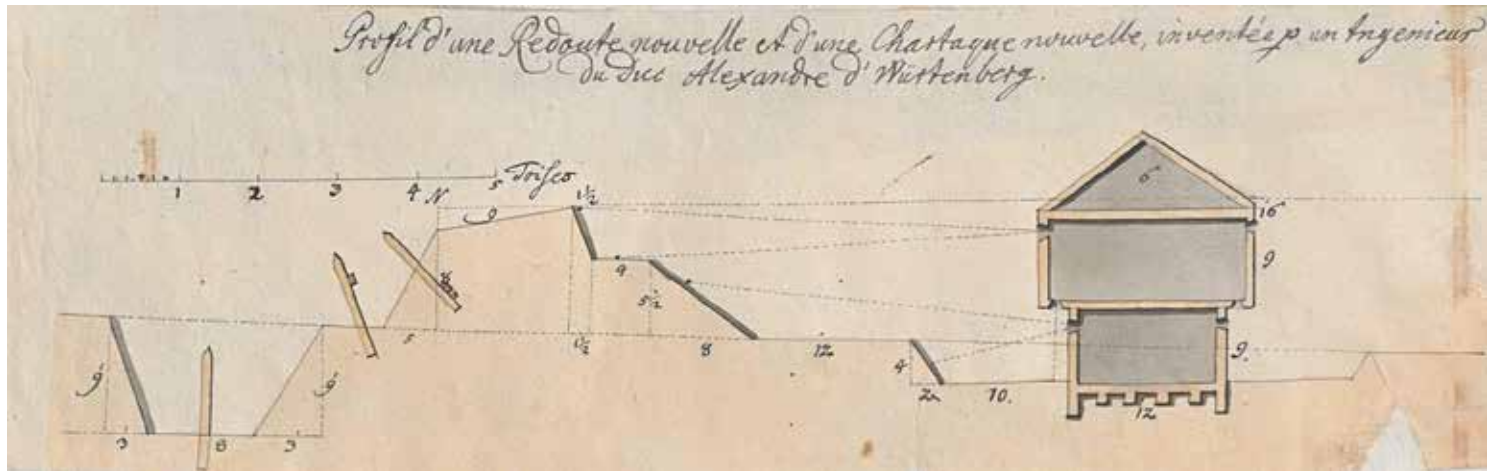 Profil d'une Redoute nouvelle et d'une Chartaque nouvelle, inventée p un Ingenieur
du Duc Alexandre d'Würtenberg.
1 2 3 4 5 Toises
N 9 1½
6
16
9
9
5½
5 1½ 8 12
4
9
9' 9'
2 10. 12
3 8 3